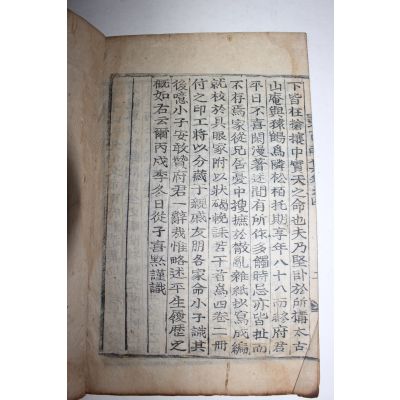 下皆枉搶攘中實天之命也夫乃堅卧於所搆本古
山庵與猿鶴爲隣松栢托期享年八十八而終府君
平日不喜閑漫著述間有所作多觸時忌亦皆扯而
不存爲家從兄居憂中搜摭於散亂雜紙抄寫成編
就校於具眼家附以狀碣輓誄若干首爲四卷二冊
付之印工將以分藏于親戚友朋各家命小子識其
後噫小子安敢贊府君一辭哉惟略述平生履歷之
槪如右云爾丙戌季冬日從子喜點謹識